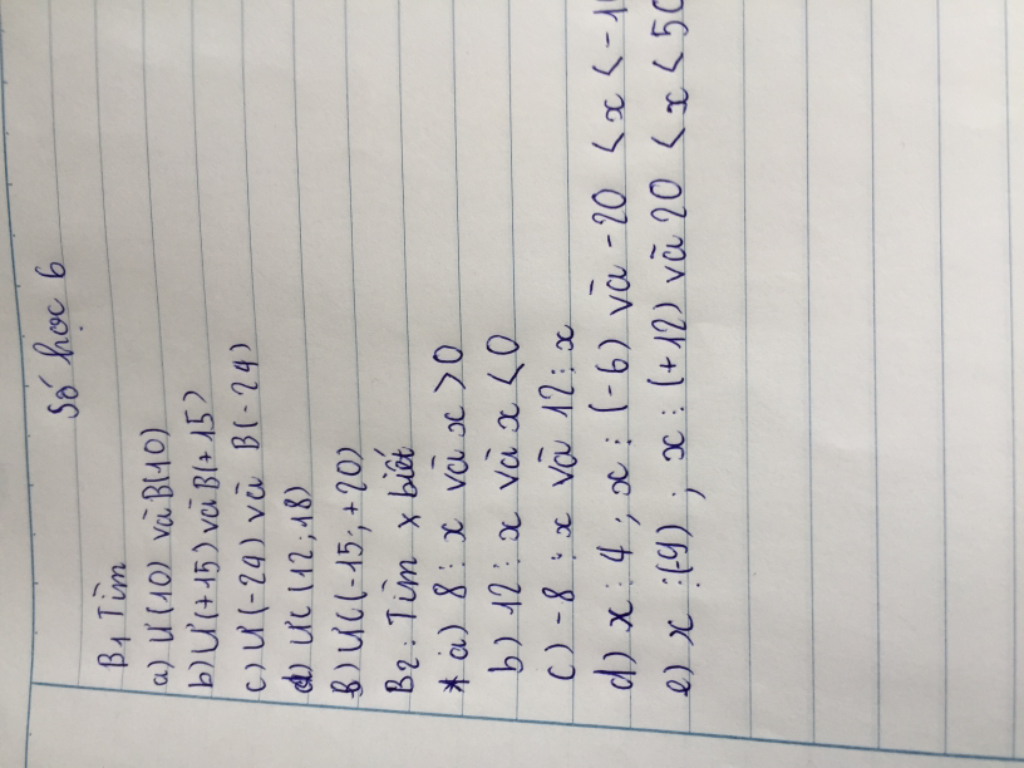 Số học 6
B1 Tìm
a) Ư(10) và B(10)
b) Ư(+15) và B(+15)
c) Ư(-24) và B(-24)
d) ƯC(12;18)
B) ƯC(-15;+20)
B2: Tìm x biết
* a) 8 ⋮ x và x > 0
b) 12 ⋮ x và x < 0
c) -8 ⋮ x và 12 ⋮ x
d) x ⋮ 4 ; x ⋮ (-6) và -20 < x < -1
e) x ⋮ (-9) ; x ⋮ (+12) và 20 < x < 50